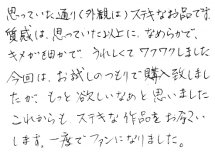 思っていた通り(外観は)ステキなお品です
質感は、思っていた以上に、なめらかで、
キメが細かで、うれしくてワクワクしました
今回は、お試しのつもりで購入致しまし
たが、もっと欲しいなぁと思いました
これからも、ステキな作品をお願い
します。一度でファンになりました。